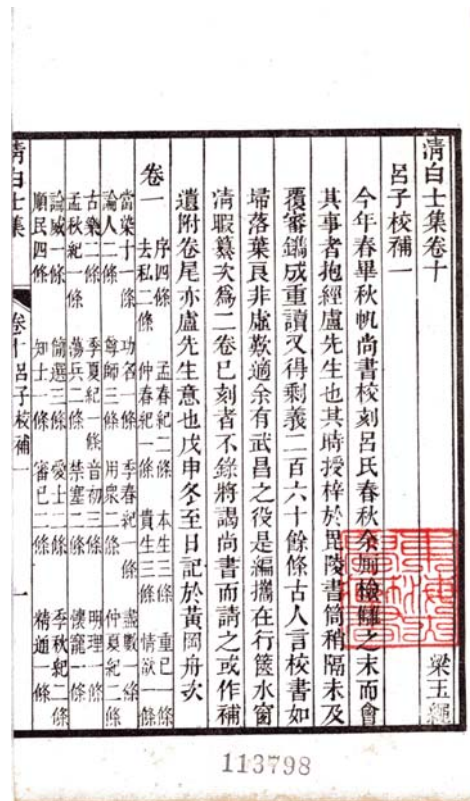 清白士集卷十 梁玉繩
呂子校補一
今年春畢秋帆尚書校刻呂氏春秋余厠檢讎之末而會
其事者抱經盧先生也其時授梓於毘陵書筒稍隔未及
覆審鐫成重讀又得剩義二百六十餘條古人言校書如
埽落葉良非虛歎適余有武昌之役是編攜在行篋水窗
清暇纂次爲二卷已刻者不錄將謁尚書而請之或作補
遺附卷尾亦盧先生意也戊申冬至日記於黃岡舟次
卷一
序四條 孟春紀二條 本生三條 重已一條
去私二條 仲春紀一條 貴生三條 情欲一條
當染十一條 功名一條 季春紀一條 盡數一條
論人二條 尊師三條 用衆二條 仲夏紀二條
古樂二條 季夏紀一條 音初三條 明理一條
孟秋紀一條 蕩兵二條 禁塞二條 懷寵一條
論威一條 簡選三條 愛士二條 季秋紀二條
順民四條 知士一條 審已二條 精通一條
清白士集 卷十呂子校補一 一
113798